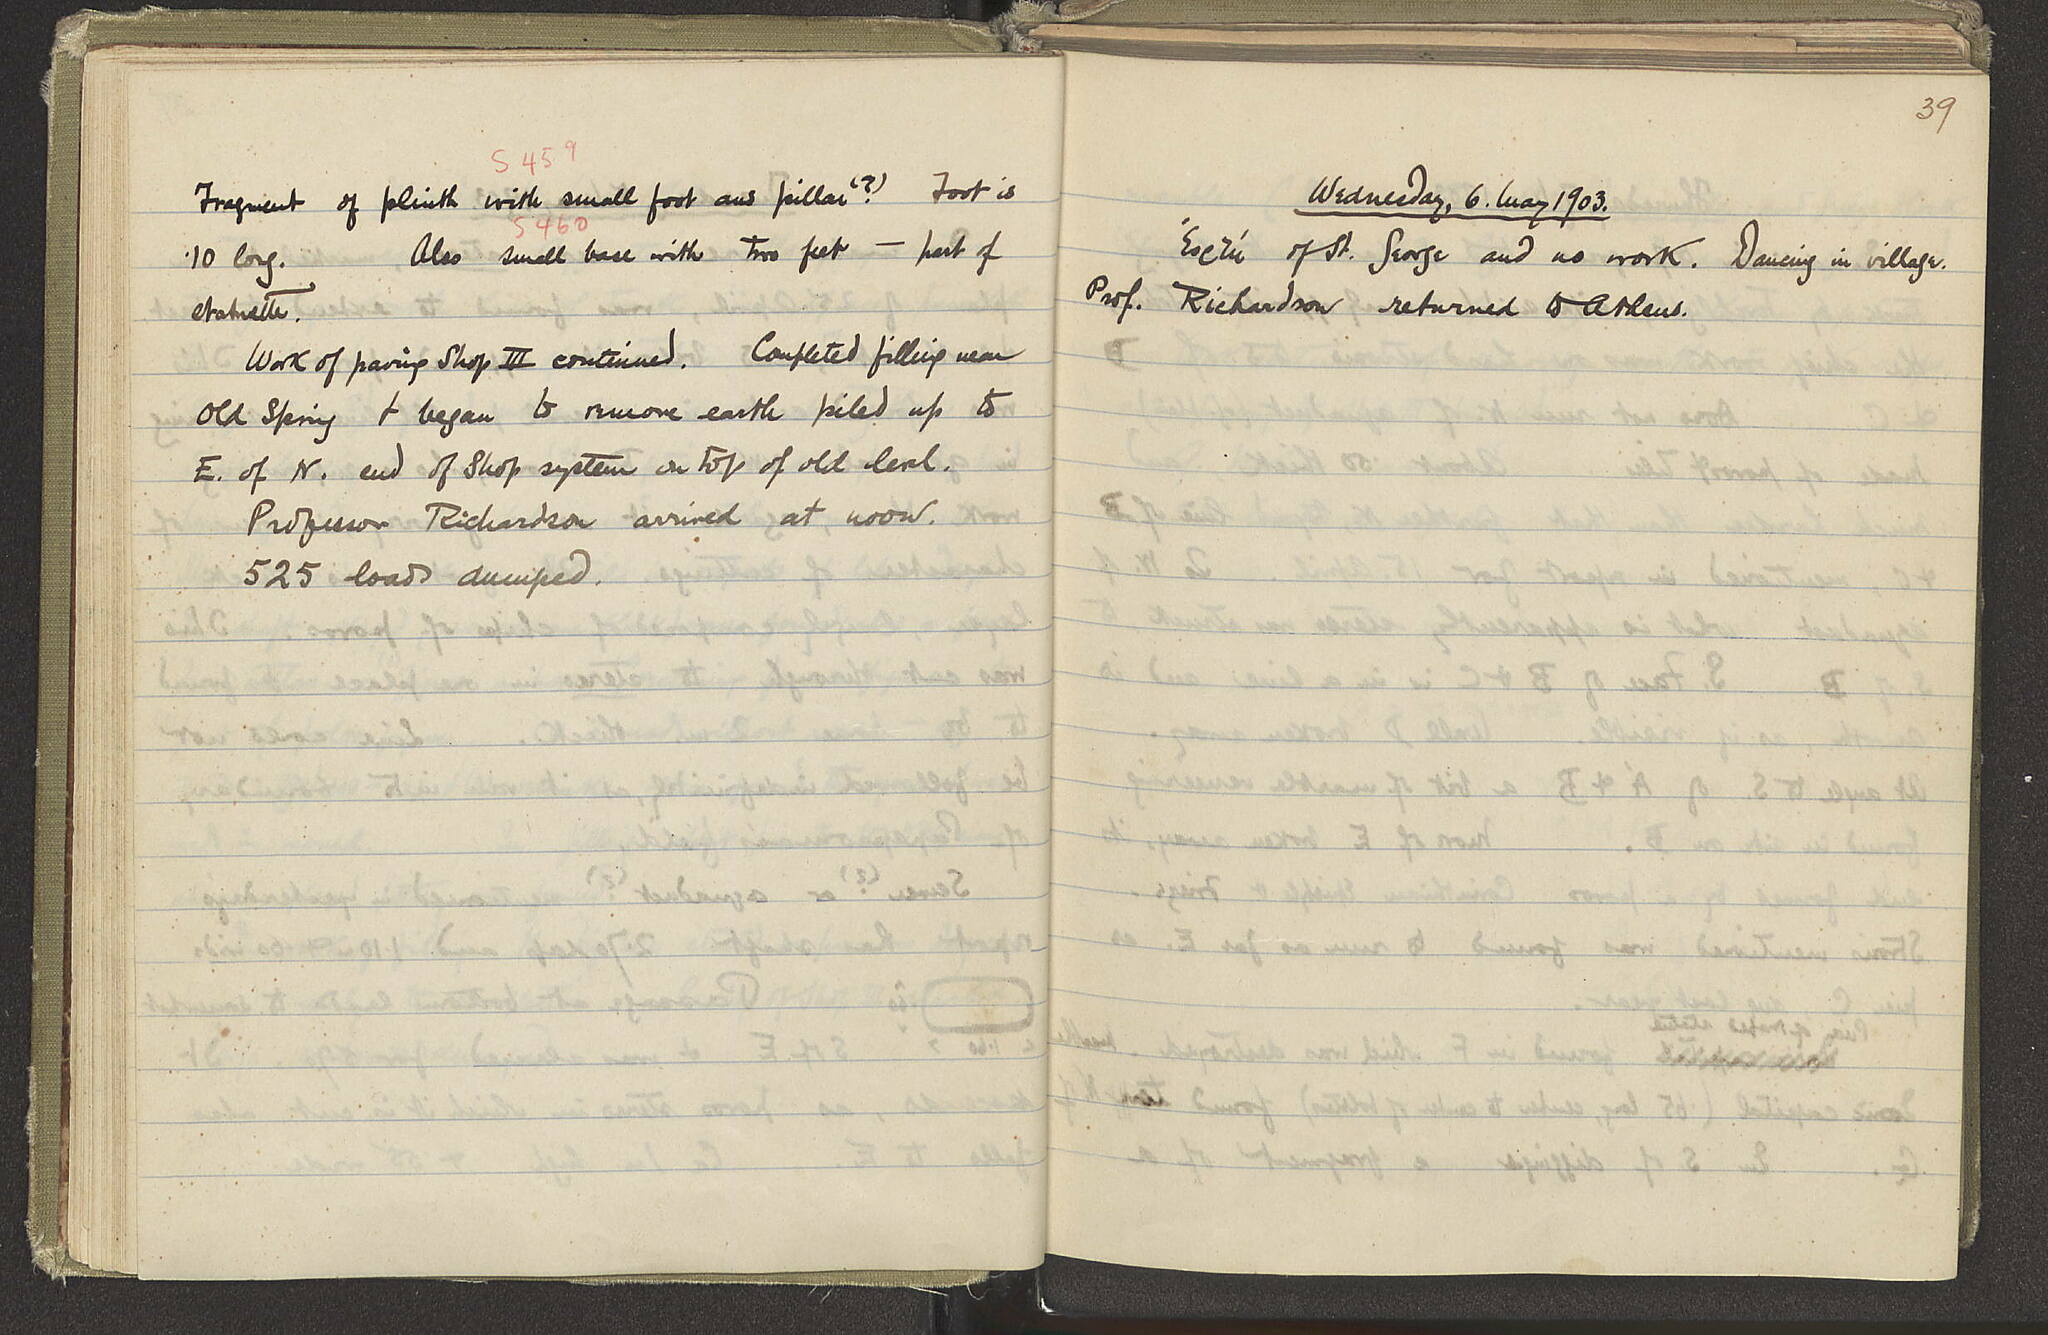 S 459
Fragment of plinth with small foot and pillar (?) Foot is
S 460
.10 long. Also small base with two feet — part of
statuette.
Work of paving Shop III continued. Completed filling near
Old Spring + began to remove earth piled up to
E. of N. end of Shop system on top of old level.
Professor Richardson arrived at noon.
525 loads dumped.
39
Wednesday, 6. May 1903.
of St. George and no work. Dancing in village.
Prof. Richardson returned to Athens.